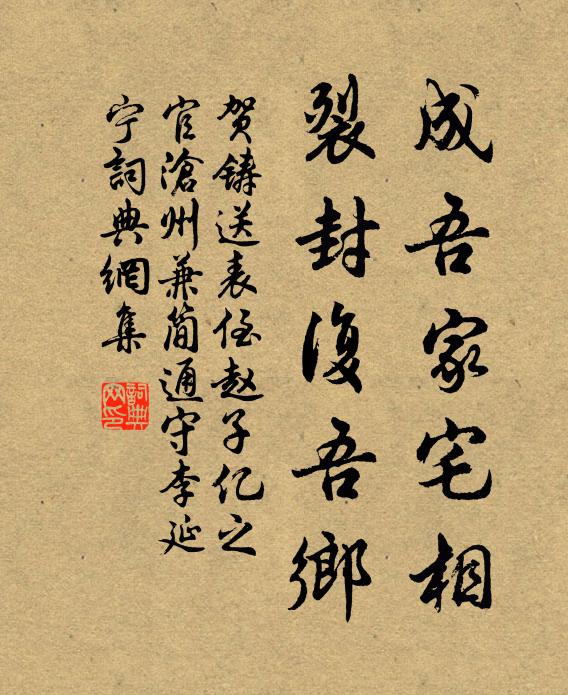 成吾家宅相
裂封復吾鄉
贺鑄送表侄赵子亿之
官滄州兼簡通守李延
宁詞典網集
詞典网印